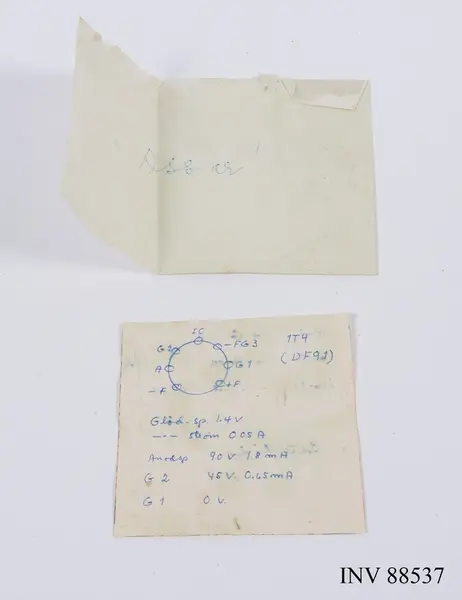 IC
G2 -FG3
A G1
-F +F
1T4
(DF91)
Glödsp. 1.4 V
-"- ström 0.05 A
Anodsp 90 V 1.8 mA
G 2 45 V 0.65 mA
G 1 0 V.
INV 88537